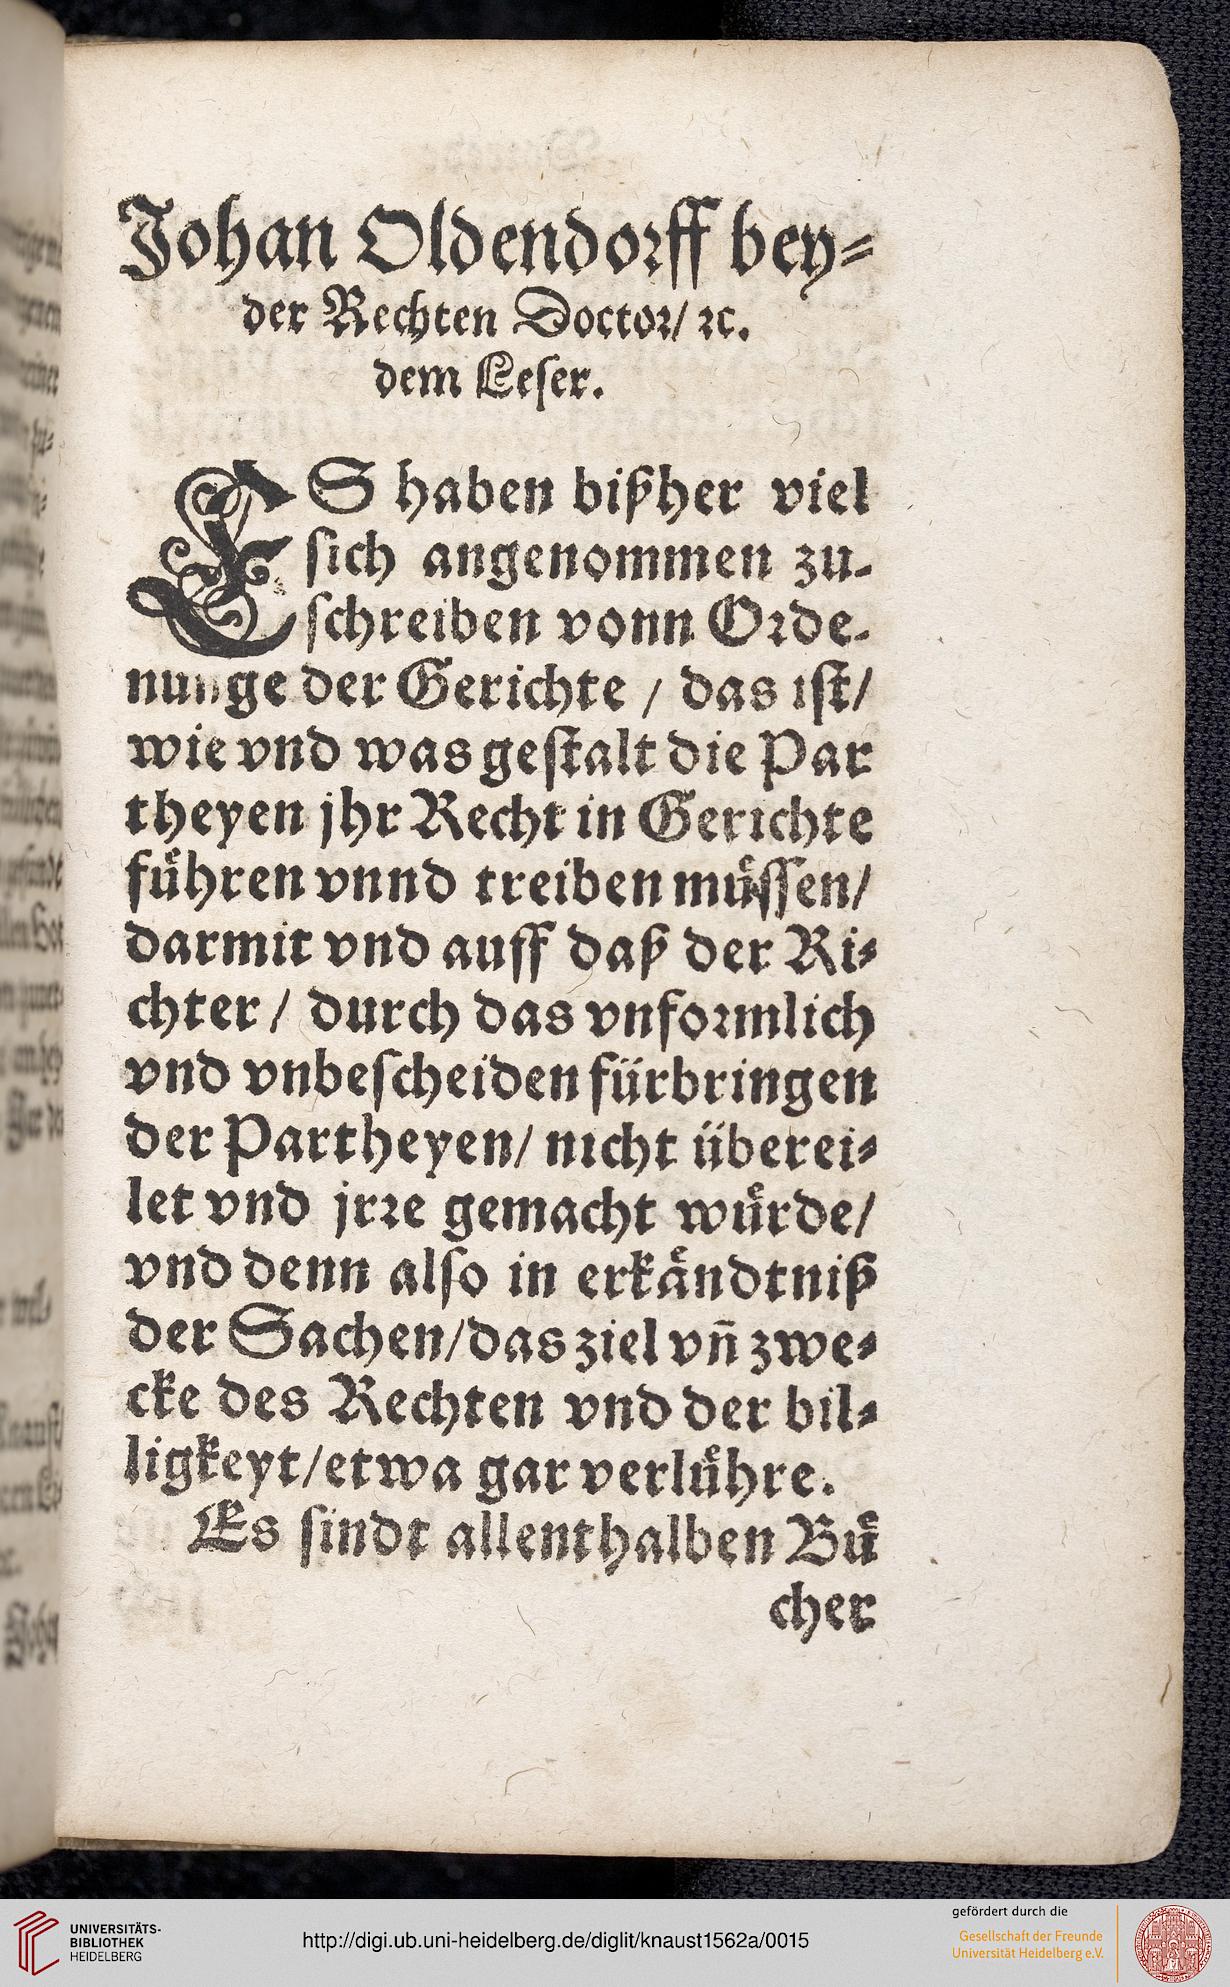 Johan Oldendorff bey⸗
der Rechten Doctor/ ꝛc.
dem Leſer.
ES haben bißher viel
ſich angenommen zu-
ſchreiben vonn Orde-
nunge der Gerichte / das iſt/
wie vnd was geſtalt die Par
theyen jhr Recht in Gerichte
fuͤhren vnnd treiben muͤſſen/
darmit vnd auff daß der Ri⸗
chter / durch das vnformlich
vnd vnbeſcheiden fürbringen
der Partheyen/ nicht überei⸗
let vnd jrꝛe gemacht wuͤrde/
vnd denn alſo in erkaͤndtniß
der Sachen/das ziel vñ zwe⸗
cke des Rechten vnd der bil⸗
ligkeyt/etwa gar verluͤhre.
Es ſindt allenthalben Buͤ
cher
UNIVERSITÄTS-
BIBLIOTHEK
HEIDELBERG
http://digi.ub.uni-heidelberg.de/diglit/knaust1562a/0015
gefördert durch die
Gesellschaft der Freunde
Universität Heidelberg e.V.